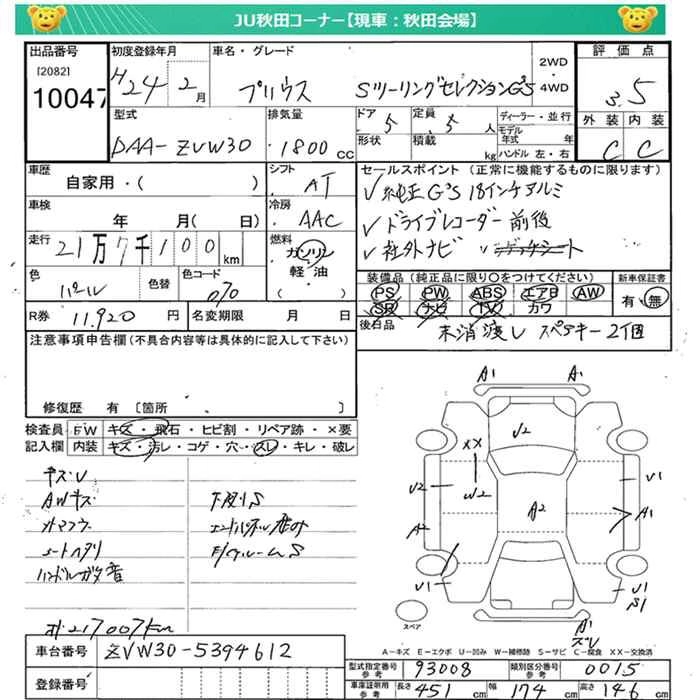 JU秋田コーナー【現車：秋田会場】
出品番号
[2082]
10047
初度登録年月
H24 2月
車名・グレード
プリウス Sツーリングセレクション G'S
2WD
・
4WD
評価点
3.5
外装 内装
C C
型式
DAA-ZVW30
排気量
1800 CC
ドア 5
定員 5人
形状
積載 kg
ディーラー・並行
モデル年式 年
ハンドル 左・右
車歴
自家用・( )
シフト
AT
車検
年 月( 日)
冷房
AAC
走行
21万7千100 km
燃料
ガソリン
軽油
( )
色
パール
色替
色コード
070
R券 11,920 円
名変期限 月 日
セールスポイント (正常に機能するものに限ります)
✓純正G'S 18インチアルミ
✓ドライブレコーダー前後
✓社外ナビ
装備品 (純正品に限り○をつけてください)
PS PW ABS エアB AW
SR ナビ TV カワ
新車保証書
有・無
後日品
未消渡し スペアキー2個
注意事項申告欄(不具合内容等は具体的に記入して下さい)
修復歴 有 [箇所 ]
検査員記入欄
FW キズ・飛石・ヒビ割・リペア跡・×要
内装 キズ・汚レ・コゲ・穴・スレ・キレ・破レ
キズU
AWキズ
外マフラー
シートヘタリ
ハンドルガタ音
下廻りS
エンドパネル歪み
F/フレームS
オ. 217007km
A1 A1
U2
XX
W2
U2
A2
A2
U1
A1
U1
U1
S1
A1
ズレ
スペア
A－キズ E－エクボ U－凹み W－補修跡 S－サビ C－腐食 XX－交換済
車台番号 ZVW30-5394612
登録番号
型式指定番号参考 93008
類別区分番号参考 0015
車庫証明用参考 長さ 451 cm 幅 174 cm 高さ 146 cm